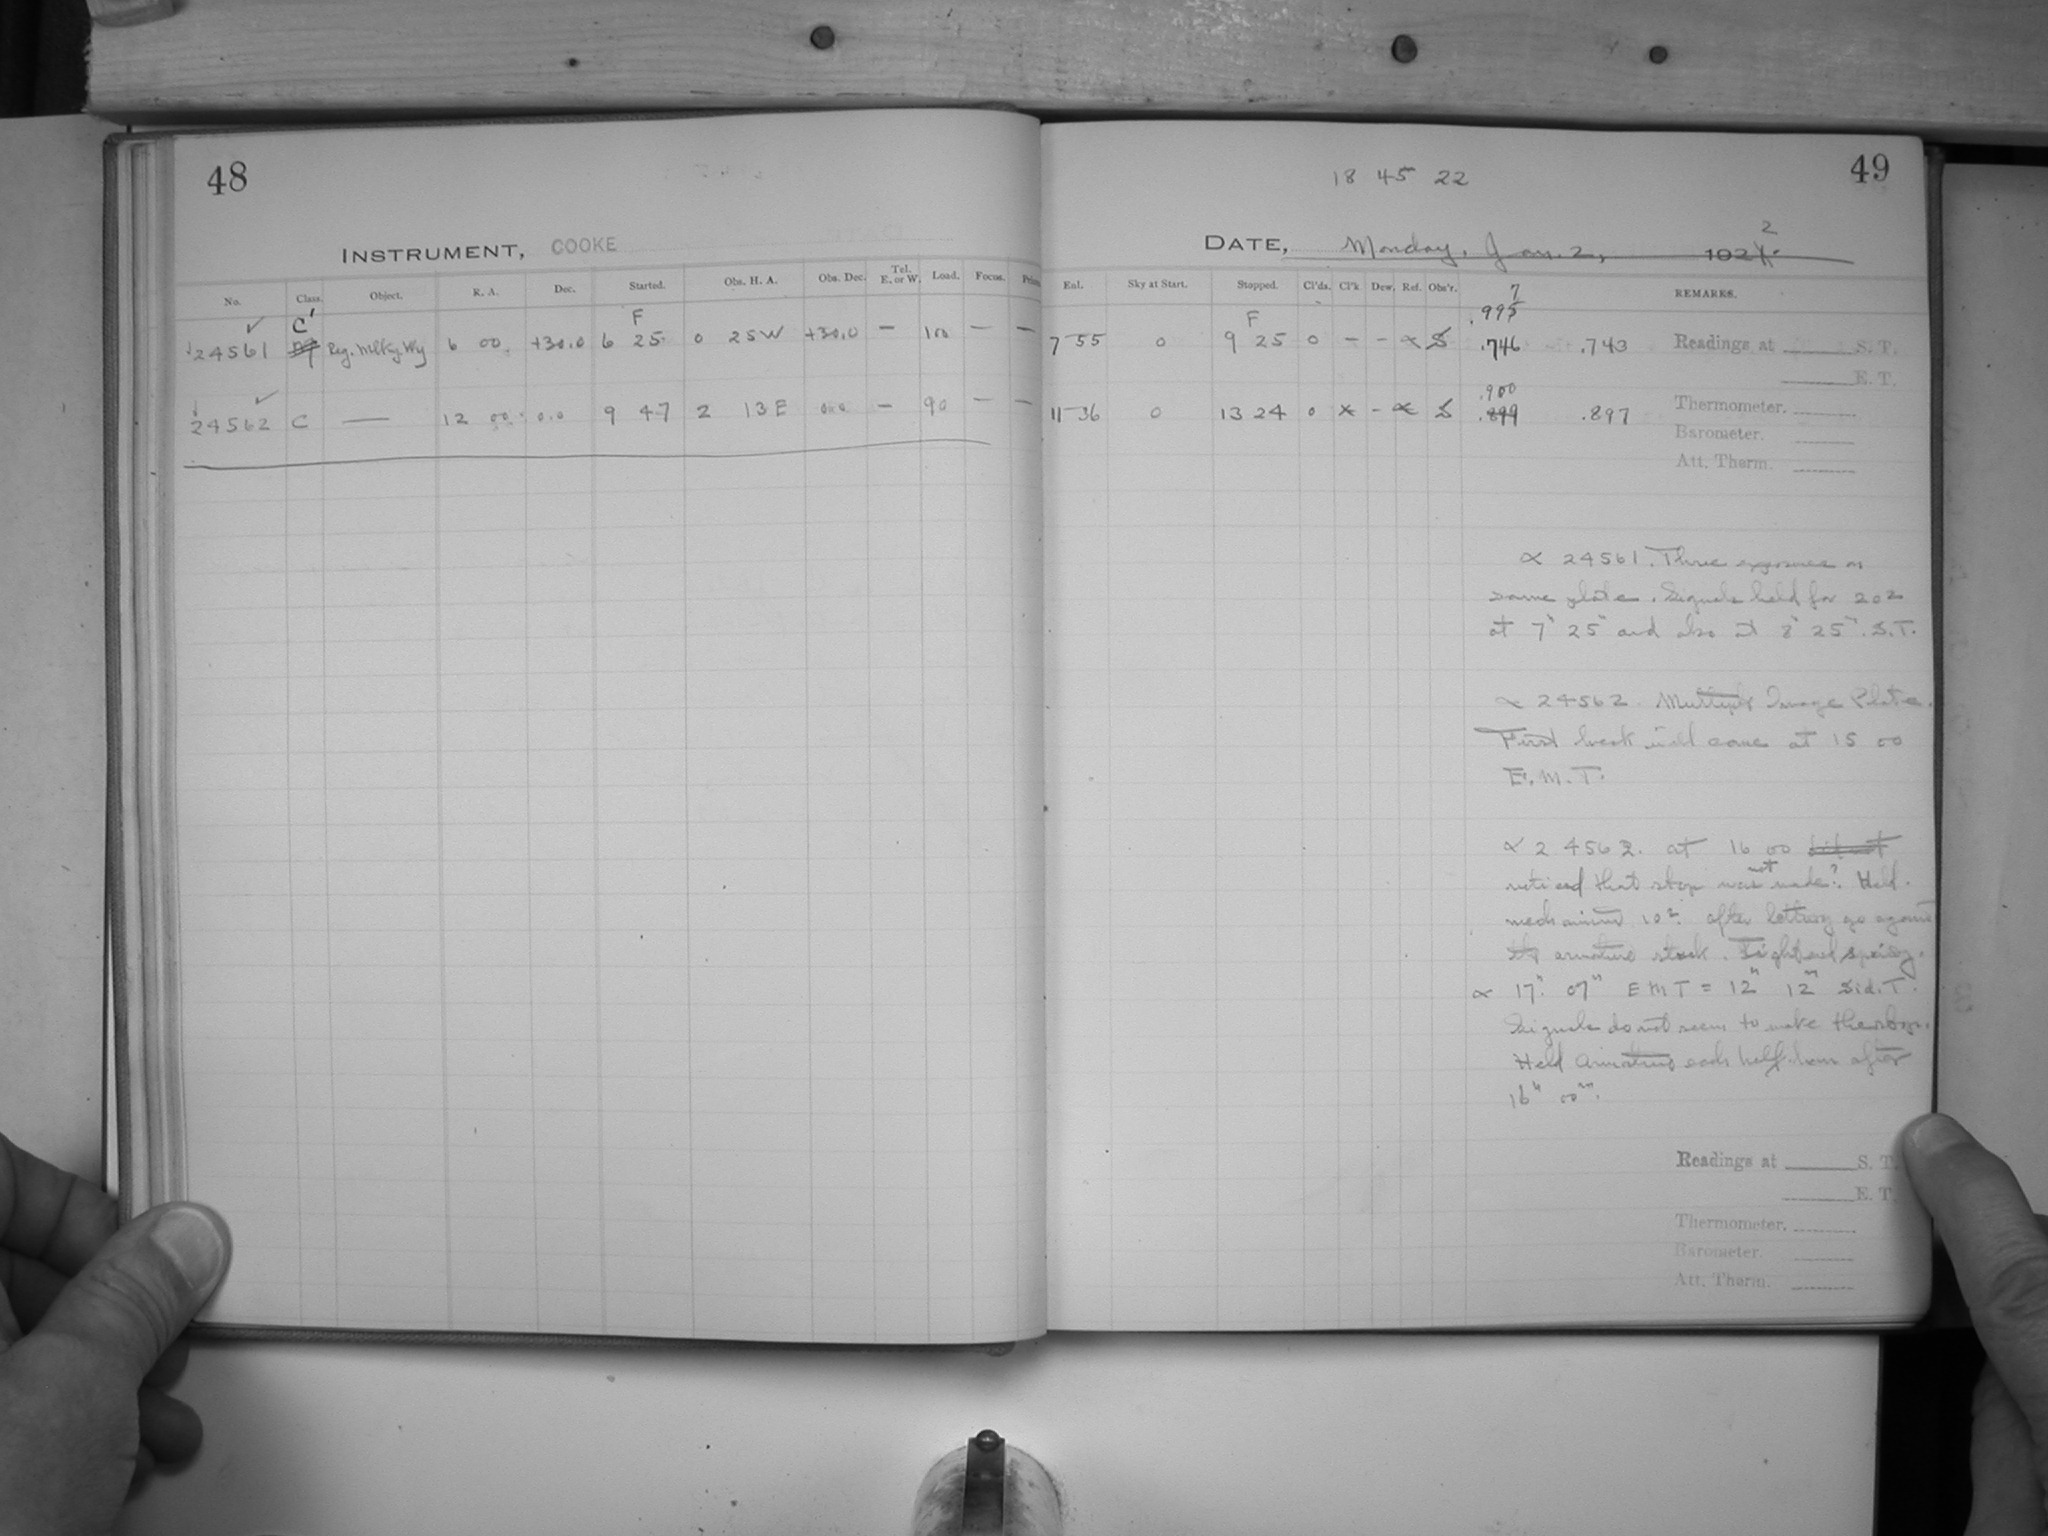 48
INSTRUMENT, COOKE
No. Class. Object. R. A. Dec. Started. Obs. H. A. Obs. Dec. Tel. E. or W. Load. Focus.
24561 C' Reg. Milky Way 6 00 +30.0 F 6 25 0 25 W +30.0 — 100 — —
24562 C — 12 00 0.0 9 47 2 13 E 0.0 — 90 — —
49
18 45 22
DATE, Monday, Jan. 2, 1922
Exl. Sky at Start. Stopped. Cl'ds. Cl'k Dew. Ref. Obs'r. REMARKS.
7 55 0 F 9 25 0 – – ∝ S .746 .743 Readings at S. T.
E. T.
.900
11 36 0 13 24 0 x – ∝ S .899 .897 Thermometer.
Barometer.
Att. Therm.
∝ 24561. Three exposures on
same plate. Signals held for 20
at 7h 25m and also at 8h 25m. S.T.
∝ 24562. Multiple Image Plate.
First break will come at 15 00
E. M. T.
∝ 24562. at 16 00
noticed that stop was not made? Held
mechanism 10 after letting go again
the armature stuck. Tightened spring.
∝ 17h 07m EMT = 12h 12m Sid. T.
Signals do not seem to make the stop.
Held armature each half-hour after
16h 00m.
Readings at S. T.
E. T.
Thermometer.
Barometer.
Att. Therm.